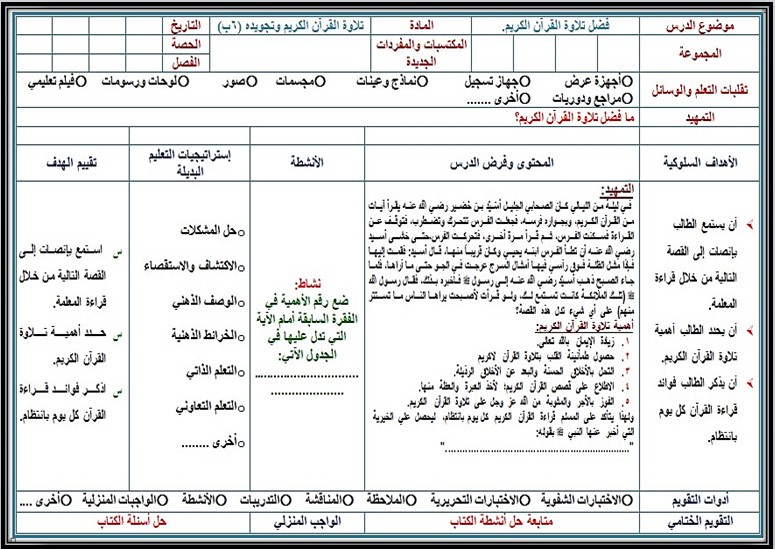 موضوع الدرس
فضل تلاوة القرآن الكريم.
المادة
تلاوة القرآن الكريم وتجويده (٦ب)
التاريخ
المجموعة
المكتسبات والمفردات الجديدة
الحصة
الفصل
تقلبات التعلم والوسائل
أجهزة عرض
جهاز تسجيل
نماذج وعينات
مجسمات
صور
لوحات ورسومات
فيلم تعليمي
مراجع ودوريات
أخرى .......
التمهيد
ما فضل تلاوة القرآن الكريم؟
الأهداف السلوكية
المحتوى وفرض الدرس
الأنشطة
إستراتيجيات التعليم البديلة
تقييم الهدف
أن يستمع الطالب
بإنصات إلى القصة
التالية من خلال قراءة
المعلمة.
أن يحدد الطالب أهمية
تلاوة القرآن الكريم.
أن يذكر الطالب فوائد
قراءة القرآن كل يوم
بانتظام.
التمهيد:
في ليلة من الليالي كان الصحابي الجليل أسيد بن حضير رضي الله عنه يقرأ آيات
من القرآن الكريم، وبجواره فرسه، فجعلت الفرس تتحرك وتضطرب، فتوقف عن
القراءة فسكنت الفرس، ثم قرأ مرة أخرى، فتحركت الفرس، حتى خشي أسيد
رضي الله عنه أن تطأ الفرس ابنه يحيى وكان قريباً منها، قال أسيد: فقمت إليها
فإذا مثل الظلة فوق رأسي فيها أمثال السرج عرجت في الجو حتى ما أراها، فلما
جاء الصبح ذهب أسيد رضي الله عنه إلى رسول ﷺ فأخبره بذلك، فقال رسول الله
ﷺ (تلك الملائكة كانت تستمع لك، ولو قرأت لأصبحت يراها الناس ما تستتر
منهم) على أي شيء تدل هذه القصة؟
أهمية تلاوة القرآن الكريم:
١. زيادة الإيمان بالله تعالى.
٢. حصول طمأنينة القلب بتلاوة القرآن لاكريم
٣. التحل بالأخلاق الحسنة والبعد عن الأخلاق الرذيلة.
٤. الاطلاع على قصص القرآن الكريم؛ لأخذ العبرة والعظة منها.
٥. الفوز بالأجر والمثوبة من الله عز وجل على تلاوة القرآن الكريم.
ولهذا يتأكد على المسلم قراءة القرآن الكريم كل يوم بانتظام، ليحصل على الخيرية
التي أخبر عنها النبي ﷺ بقوله:
"......................................................"
نشاط:
ضع رقم الأهمية في
الفقرة السابقة أمام الآية
التي تدل عليها في
الجدول الآتي:
..............................
......................
حل المشكلات
الاكتشاف والاستقصاء
الوصف الذهني
الخرائط الذهنية
التعلم الذاتي
التعلم التعاوني
أخرى ........
استمع بإنصات إلى
القصة التالية من خلال
قراءة المعلمة.
حدد أهمية تلاوة
القرآن الكريم.
اذكر فوائد قراءة
القرآن كل يوم بانتظام.
أدوات التقويم
الاختبارات الشفوية
الاختبارات التحريرية
الملاحظة
المناقشة
التدريبات
الأنشطة
الواجبات المنزلية
أخرى ....
التقويم الختامي
متابعة حل أنشطة الكتاب
الواجب المنزلي
حل أسئلة الكتاب